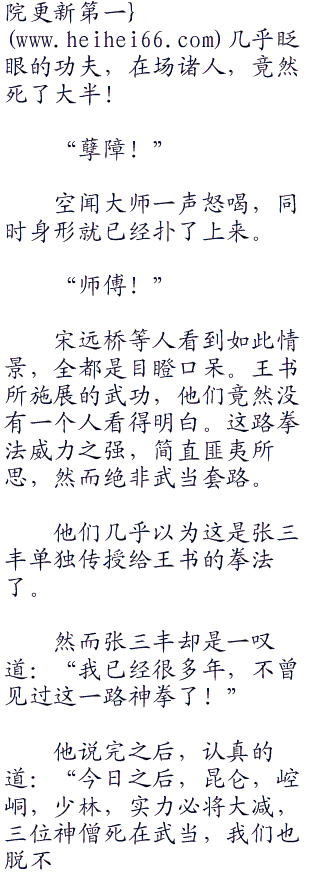 院更新第一}
(www.heihei66.com)几乎眨
眼的功夫，在场诸人，竟然
死了大半！
“孽障！”
空闻大师一声怒喝，同
时身形就已经扑了上来。
“师傅！”
宋远桥等人看到如此情
景，全都是目瞪口呆。王书
所施展的武功，他们竟然没
有一个人看得明白。这路拳
法威力之强，简直匪夷所
思，然而绝非武当套路。
他们几乎以为这是张三
丰单独传授给王书的拳法
了。
然而张三丰却是一叹
道：“我已经很多年，不曾
见过这一路神拳了！”
他说完之后，认真的
道：“今日之后，昆仑，崆
峒，少林，实力必将大减，
三位神僧死在武当，我们也
脱不